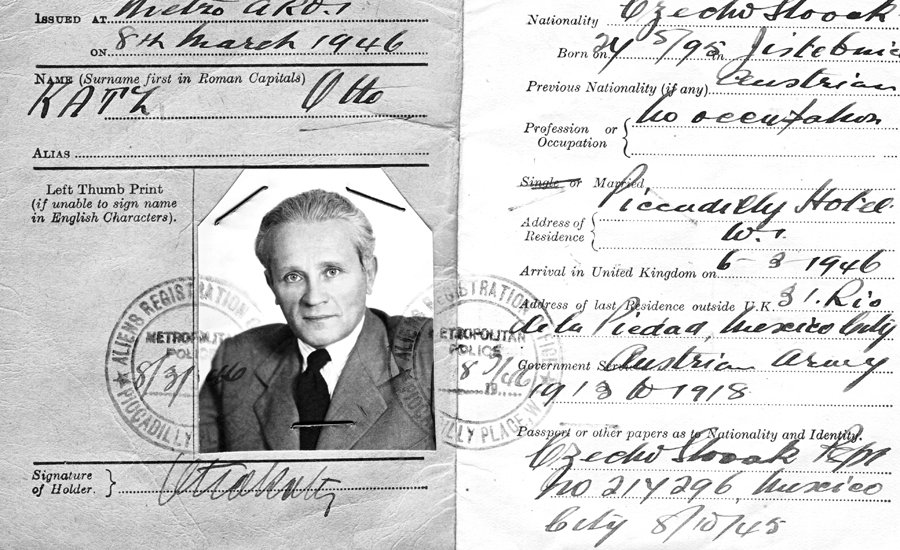 ISSUED AT Metro
ON 8th March 1946
NAME (Surname first in Roman Capitals)
KATZ Otto
ALIAS
Left Thumb Print
(if unable to sign name
in English Characters).
ALIENS REGISTRATION
METROPOLITAN
POLICE
8/3/46
PICCADILLY
Signature
of Holder.
Nationality Czecho Slovak
Born on 27/5/95 in Jistebnice
Previous Nationality (if any) Austrian
Profession or
Occupation
No occupation
Single or Married
Address of
Residence
Piccadilly Hotel
W.1
Arrival in United Kingdom on 6-3-1946
Address of last Residence outside U.K. 31. Rio
de la Piedad, Mexico City
Government Austrian Army
1913 to 1918
METROPOLITAN
POLICE
8/3/46
PICCADILLY PLACE W.1
Passport or other papers as to Nationality and Identity.
Czecho Slovak
No 214296, Mexico
City 8/10/45